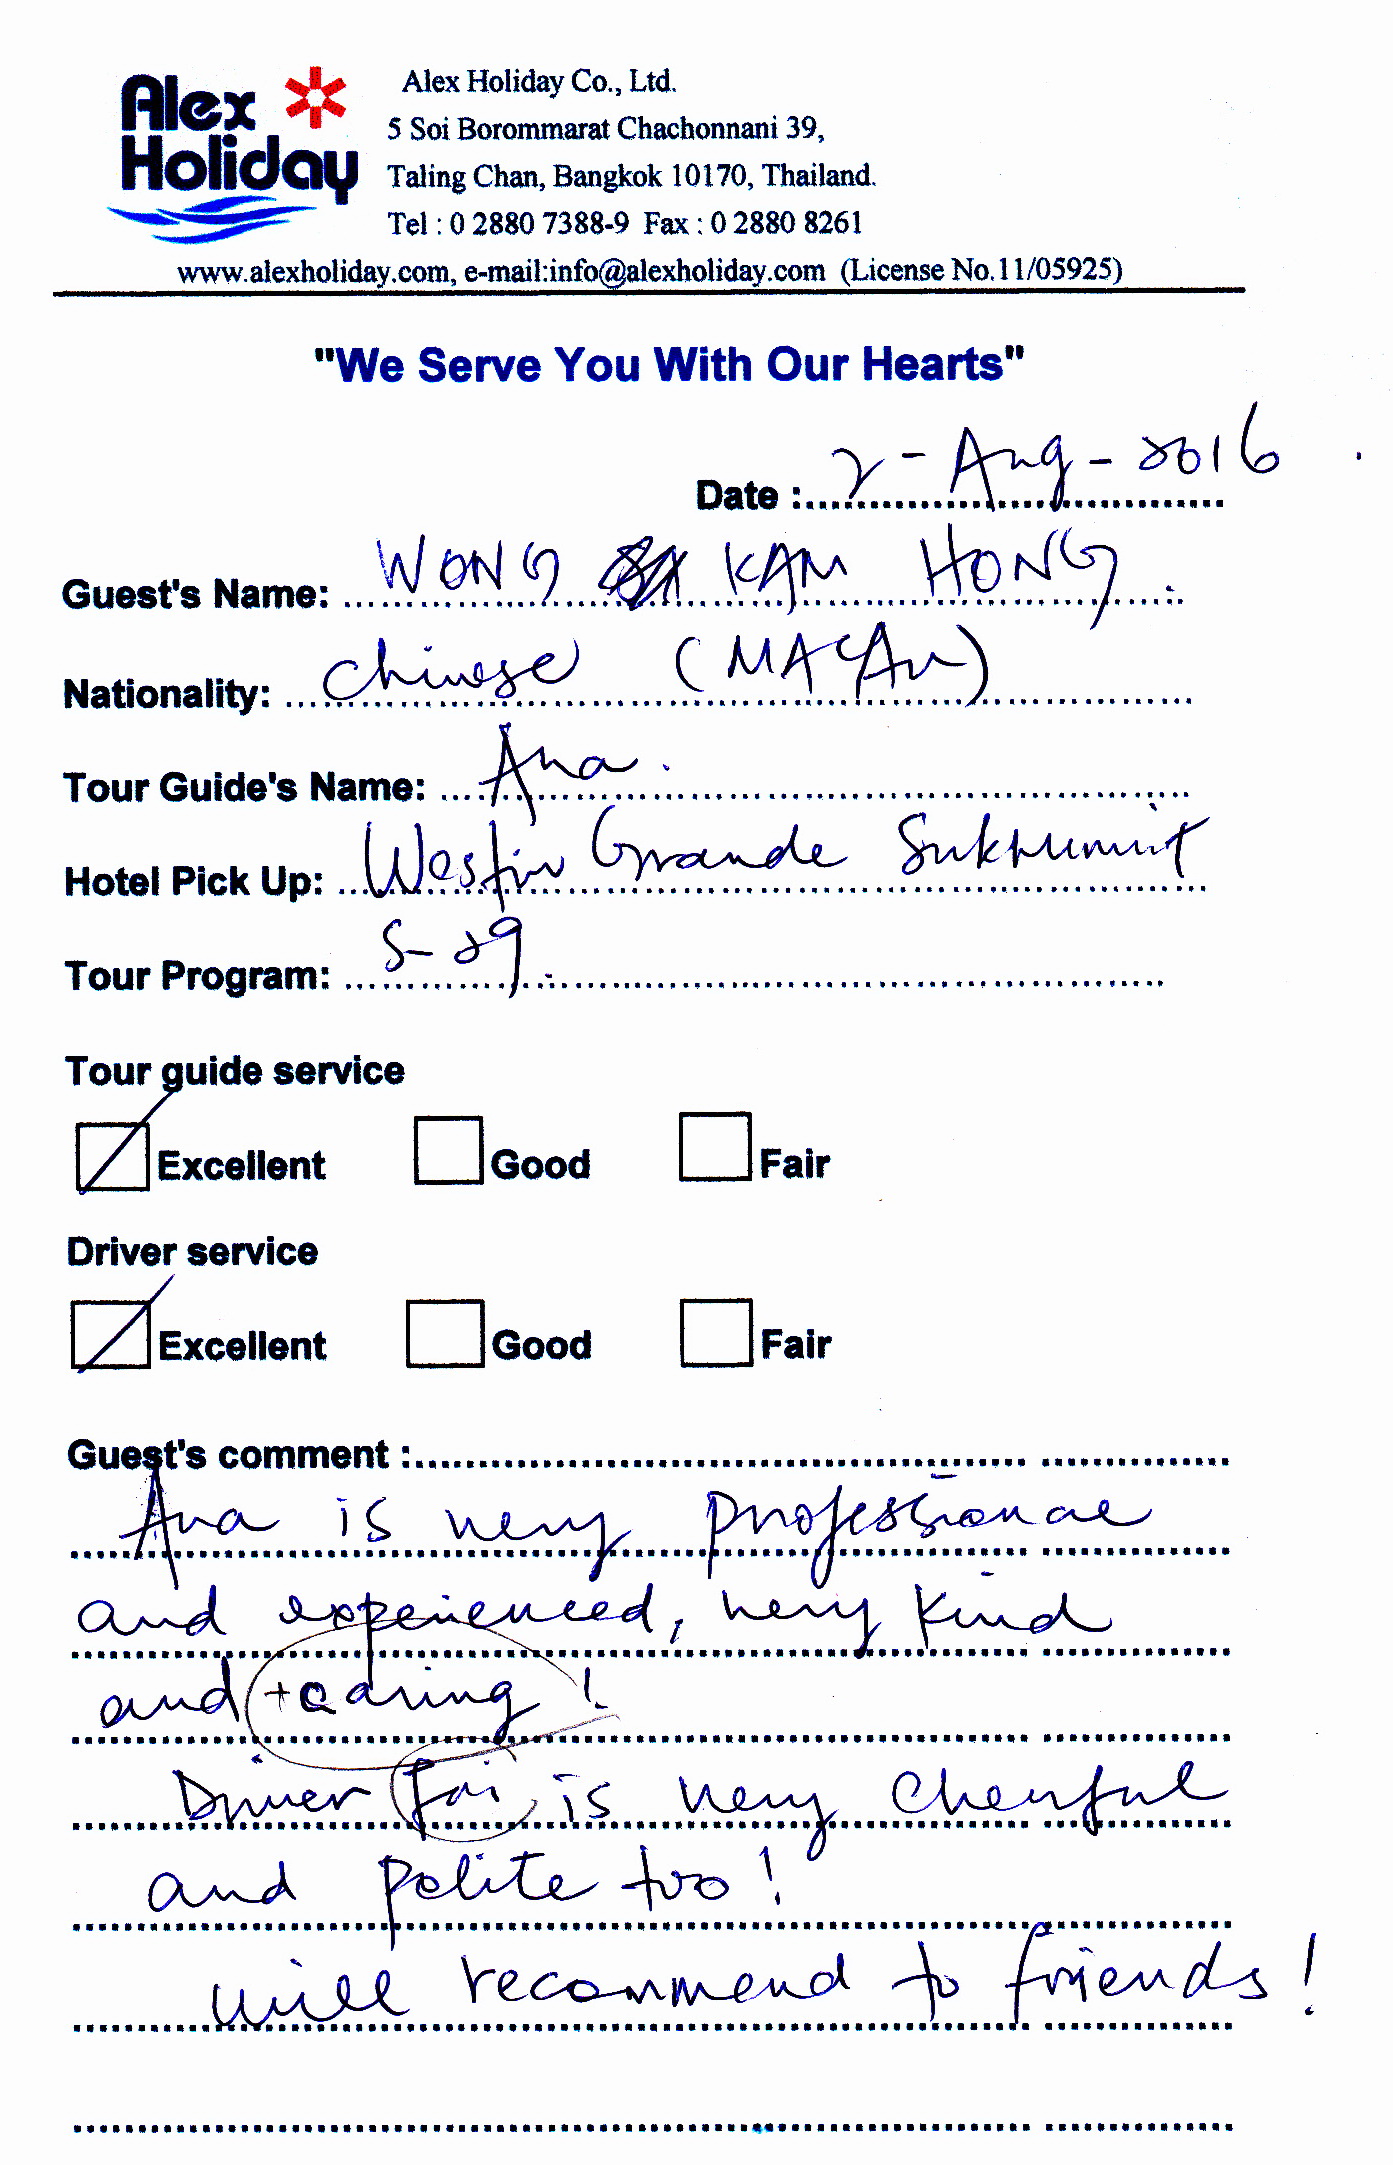 Alex Holiday
Alex Holiday Co., Ltd.
5 Soi Borommarat Chachonnani 39,
Taling Chan, Bangkok 10170, Thailand.
Tel : 0 2880 7388-9 Fax : 0 2880 8261
www.alexholiday.com, e-mail:info@alexholiday.com (License No.11/05925)
"We Serve You With Our Hearts"
Date : 2-Aug-2016
Guest's Name: WONG KAM HONG
Nationality: Chinese (MACAu)
Tour Guide's Name: Ana.
Hotel Pick Up: Westin Grande Sukhumvit
Tour Program: S-29
Tour guide service
Excellent Good Fair
Driver service
Excellent Good Fair
Guest's comment :
Ana is very professional
and experienced, very kind
and + caring!
Driver Fai is very cheerful
and polite too!
will recommend to friends!